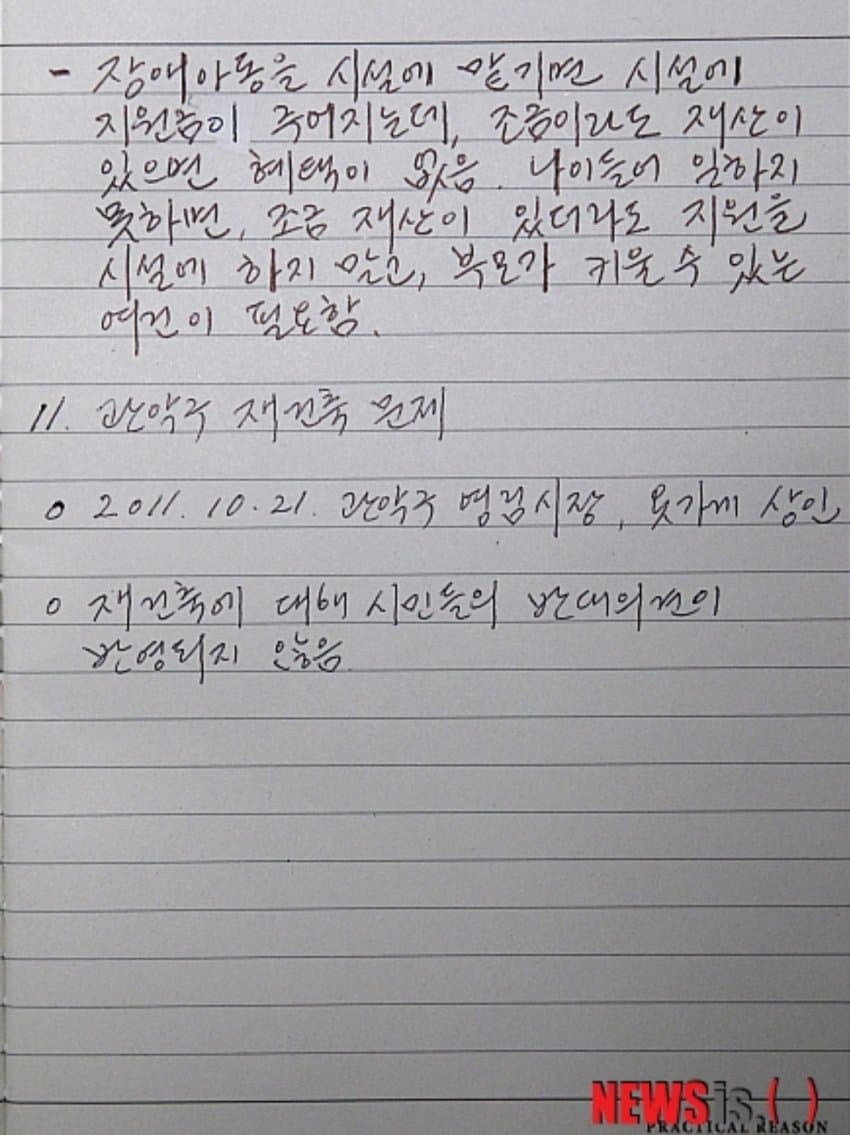 - 장애아동을 시설에 맡기면 시설에
지원금이 주어지는데, 조금이라도 재산이
있으면 혜택이 없음. 나이들어 일하지
못하면, 조금 재산이 있더라도 지원을
시설에 하지 말고, 부모가 키울 수 있는
여건이 필요함.
11. 관악구 재건축 문제
o 2011. 10. 21. 관악구 영림시장, 옷가게 상인
o 재건축에 대해 시민들의 반대의견이
반영되지 않음.
NEWSis.( )
PRACTICAL REASON